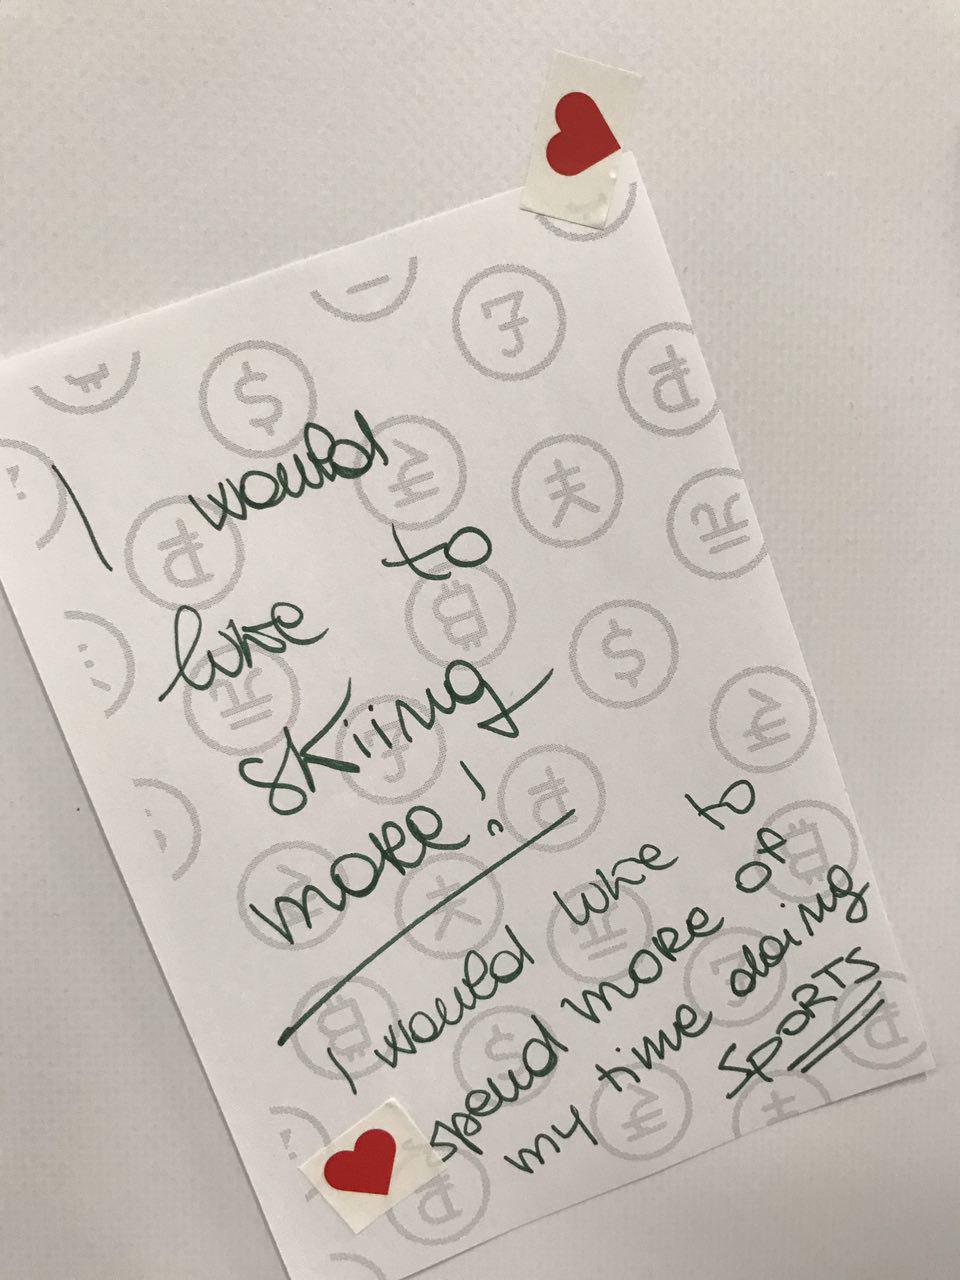 I would
like to
skiing
more!
I would like to
spend more of
my time doing
SPORTS